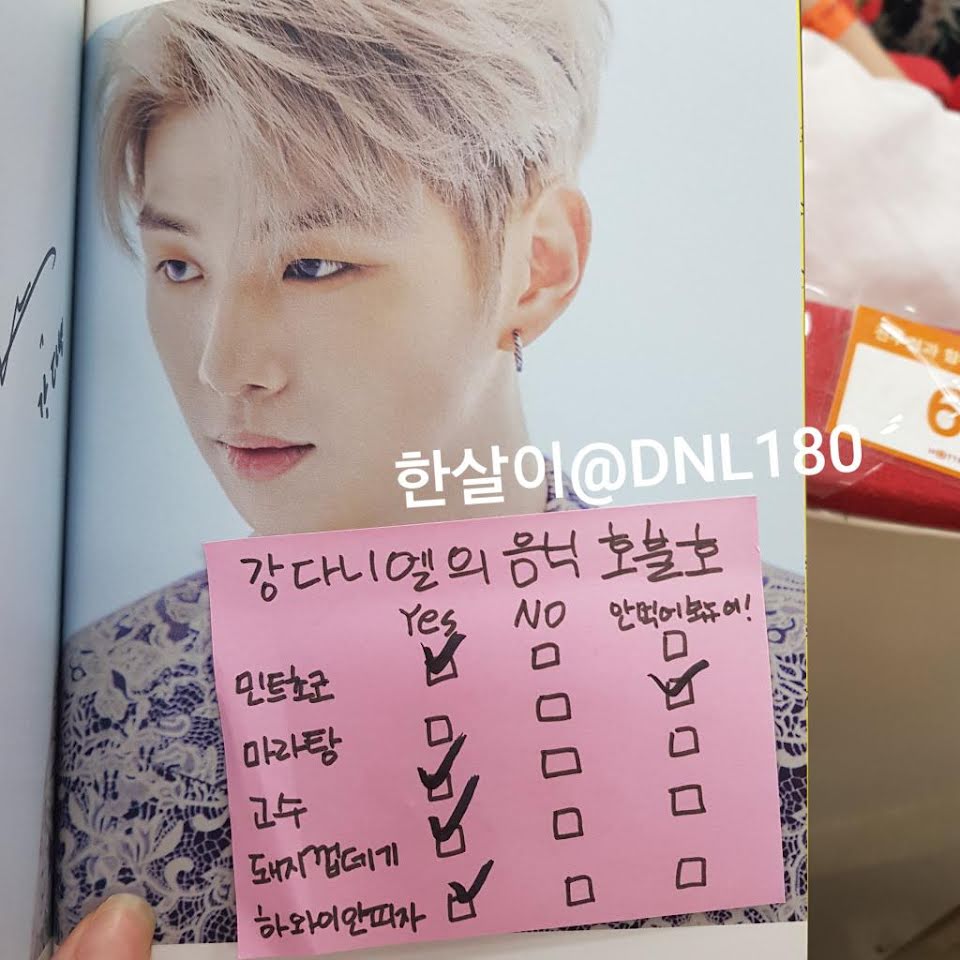 한살이@DNL180
강다니엘의 음식 호불호
Yes NO 안먹어봐쥬어!
민트초코
마라탕
고수
돼지껍데기
하와이안피자
6